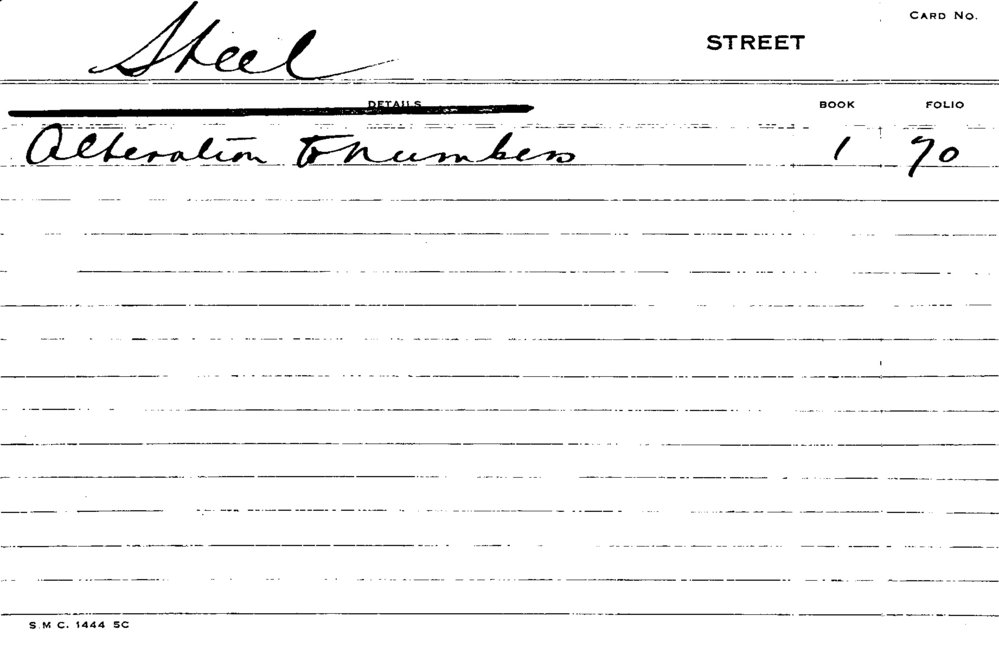 CARD NO.
Steel STREET
DETAILS BOOK FOLIO
Alteration to numbers 1 70
S.M C. 1444 5C